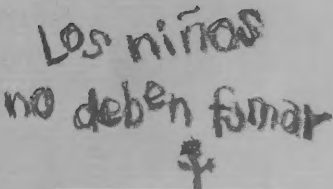 Los niños
no deben fumar